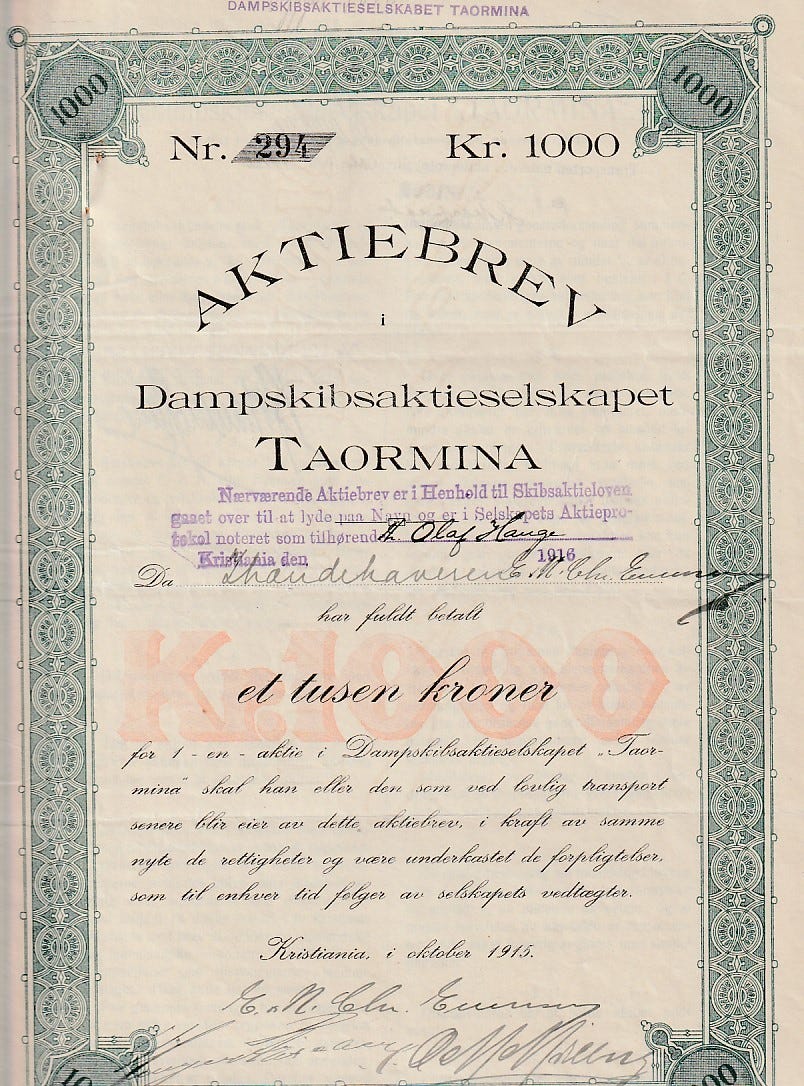 DAMPSKIBSAKTIESELSKABET TAORMINA
1000
1000
Nr. 294 Kr. 1000
AKTIEBREV
i
Dampskibsaktieselskapet
TAORMINA
Nærværende Aktiebrev er i Henhold til Skibsaktieloven
gaaet over til at lyde paa Navn og er i Selskapets Aktiepro-
tokol noteret som tilhørende Olaf Hauge
Kristiania den 1916
Da Ihændehaveren E. M. Chr.
har fuldt betalt
Kr. 1000
et tusen kroner
for 1 - en - aktie i Dampskibsaktieselskapet „Taor-
mina“ skal han eller den som ved lovlig transport
senere blir eier av dette aktiebrev, i kraft av samme
nyte de rettigheter og være underkastet de forpligtelser,
som til enhver tid følger av selskapets vedtægter.
Kristiania, i oktober 1915.
Chr.